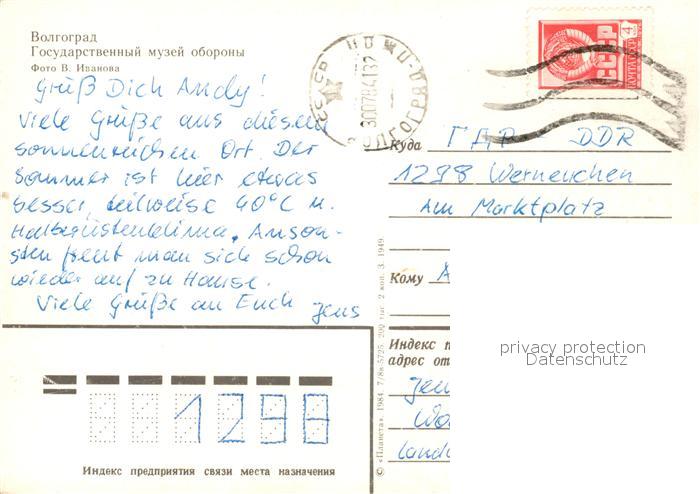 Волгоград
Государственный музей обороны
Фото В. Иванова
Grüß Dich Andy!
Viele Grüße aus diesem
sonnenreichen Ort. Der
Sommer ist hier etwas
besser, teilweise 40°C u.
Halbwüstenklima. Anson-
sten freut man sich schon
wieder auf zu Hause.
Viele Grüße an Euch
Jens
4
СССР
ПОЧТА СССР
ВОЛГОГРАД
Куда ГДР DDR
1298 Werneuchen
Am Marktplatz
Кому A
Индекс п
адрес от
Jen
Wo
Land
privacy protection
Datenschutz
1298
Индекс предприятия связи места назначения
© «Планета». 1984. 7/8в-5725. 200 тыс. 2 коп. З. 1949.